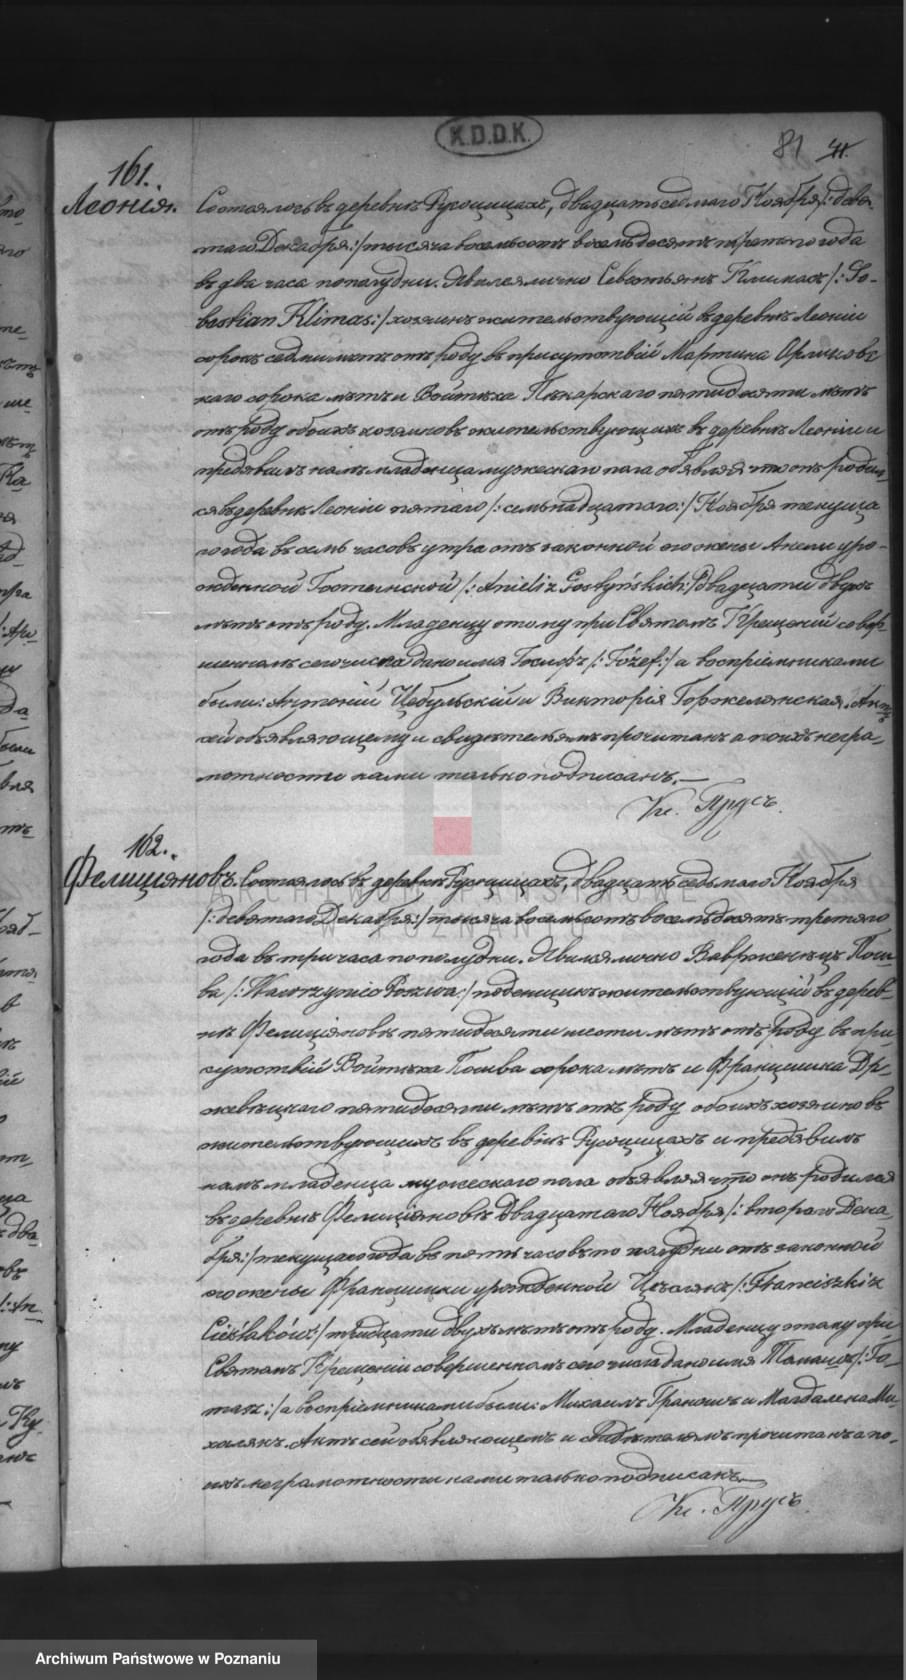 K.D.D.K.
81
161.
Леонія.
Состоялось въ деревнѣ Русоцицахъ, двадцать седьмаго Ноября /: девя-
таго Декабря :/ тысяча восемьсотъ восемьдесятъ третьяго года
въ два часа пополудни. Явился лично Севастьянъ Климасъ /: Se-
bastian Klimas :/ хозяинъ жительствующій въ деревнѣ Леоніи
сорокъ седмь лѣтъ отъ роду въ присутствіи Мартина
каго сорока лѣтъ и Войтѣха Пѣкарскаго пятидесяти лѣтъ
отъ роду обоихъ хозяиновъ жительствующихъ въ деревнѣ Леоніи и
предъявилъ намъ младенца мужескаго пола объявляя что онъ родил-
ся въ деревнѣ Леоніи пятаго /: семьнадцатаго :/ Ноября текуща
го года въ семь часовъ утра отъ законной его жены Анели уро-
жденной Гостынской /: Anieli z Gostyńskich :/ двадцати двухъ
лѣтъ отъ роду. Младенцу этому при Святомъ Крещеніи совер-
шенномъ сего числа дано имя Іосифъ /: Józef :/ а воспріемниками
были: Антоній Цебульскій и Викторія Горжелянская. Актъ
сей объявляющему и свидѣтелямъ прочитанъ а по ихъ негра-
мотности нами только подписанъ. —
Кс. Прусъ.
162.
Фелиціяновъ. Состоялось въ деревнѣ Русоцицахъ, двадцать седьмаго Ноября
/: девятаго Декабря :/ тысяча восемьсотъ восемьдесятъ третяго
года въ три часа пополудни. Явился лично Вавржинецъ Пош-
ва /: Wawrzyniec Poszwa :/ поденщикъ жительствующій въ дерев-
нѣ Фелиціяновѣ пятидесяти шести лѣтъ отъ роду въ при-
сутствіи Войтѣха Пошва сорока лѣтъ и Францишка Др-
жевѣцкаго пятидесяти лѣтъ отъ роду обоихъ хозяиновъ
жительствующихъ въ деревнѣ Русоцицахъ и предъявилъ
намъ младенца мужескаго пола объявляя что онъ родился
въ деревнѣ Фелиціяновѣ двадцатаго Ноября /: втораго Дека-
бря :/ текущаго года въ пять часовъ по полудни отъ законной
его жены Францишки урожденной Цѣслякъ /: Franciszki z
Cieślaków :/ тридцати двухъ лѣтъ отъ роду. Младенцу этому при
Святомъ Крещеніи совершенномъ сего числа дано имя Томашъ /: To-
masz :/ а воспріемниками были: Михаилъ и Магдалена Ми-
халякъ. Актъ сей объявляющему и свидѣтелямъ прочитанъ а по
ихъ неграмотности нами только подписанъ. —
Кс. Прусъ.
ARCHIWUM PAŃSTWOWE
W POZNANIU
Archiwum Państwowe w Poznaniu